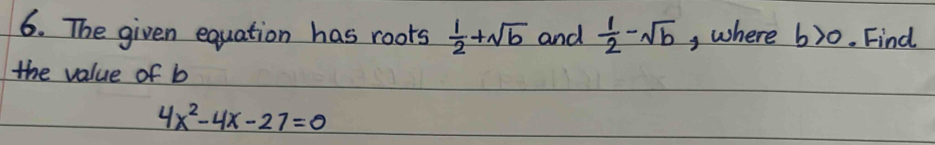 6. The given equation has roots 1/2+√b and 1/2-√b, where b>0. Find
the value of b
4x²-4x-27=0